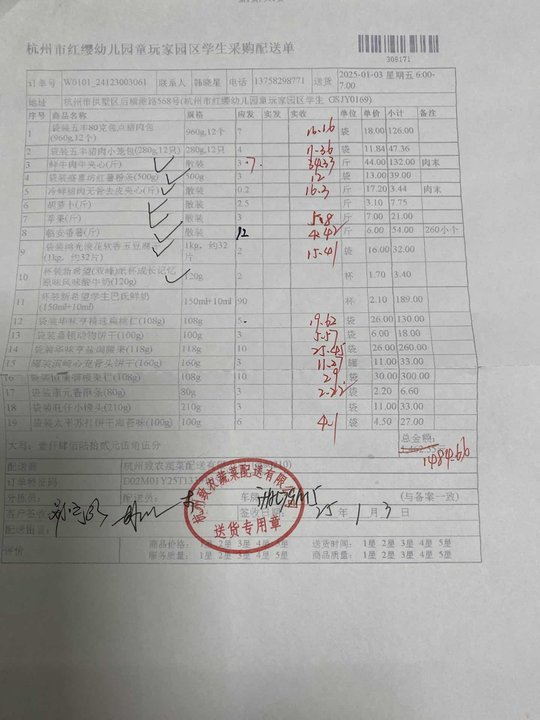 杭州市红缨幼儿园童玩家园区学生采购配送单
309171
订单号 W0101_24123003061 联系人 韩晓星 电话 13758298771 送货 2025-01-03 星期五 6:00-7:00
地址 杭州市拱墅区后横港路568号(杭州市红缨幼儿园童玩家园区学生 GSJY0169)
序号 商品名称 规格 应发 实发 实收 单位 单价 小计 备注
1 袋装五丰80克包点猪肉包(960g,12个) 960g,12个 7 16.16 袋 18.00 126.00
2 袋装五丰猪肉小笼包(280g,12只) 280g,12只 4 袋 11.84 47.36
3 鲜牛肉牛夹心(斤) 散装 3 斤 44.00 132.00 肉末
4 (500g) 500g 3 12 袋 13.00 39.00
5 冷鲜猪肉无骨去皮夹心(斤) 散装 0.2 16.3 斤 17.20 3.44 肉末
6 胡萝卜(斤) 散装 2.5 斤 3.10 7.75
7 苹果(斤) 散装 3 5.8 斤 7.00 21.00
8 临安香薯(斤) 散装 12 4.42 斤 6.00 54.00 260小个
9 (1kg, 约32片) 1kg, 约32片 2 15.41 袋 16.00 32.00
10 杯装新希望(双峰)纸杯成长记忆原味风味酸牛奶(120g) 120g 2 杯 1.70 3.40
11 杯装新希望学生巴氏鲜奶(150ml+10ml) 150ml+10ml 90 杯 2.10 189.00
12 袋装华味亨精选扁桃仁(108g) 108g 5 19.62 袋 26.00 130.00
13 袋装嘉顿动物饼干(100g) 100g 3 5.57 袋 6.00 18.00
14 袋装华味亨盐焗腰果(118g) 118g 10 25.45 袋 26.00 260.00
15 (160g) 160g 3 11.27 罐 11.00 33.00
16 (108g) 108g 10 29 袋 30.00 300.00
17 袋装康元香酥条(80g) 80g 3 2.22 袋 2.20 6.60
18 袋装旺仔小馒头(210g) 210g 3 袋 11.00 33.00
19 袋装太平苏打饼干海苔味(100g) 100g 6 4.1 袋 4.50 27.00
大写：壹仟肆佰陆拾贰元伍角伍分 总金额:
1,462.55
1484.66
配送商 杭州致农蔬菜配送有限
订单物密码
分拣员: 配送员: 车牌 (与备案一致)
客户签 签收日 25 年 1 月 3 日
杭州致农蔬菜配送有限公司
送货专用章
配送图:
评价 商品价格: 1星 2星 3星 4星 5星 送货时间: 1星 2星 3星 4星 5星
服务质量: 1星 2星 3星 4星 5星 商品质量: 1星 2星 3星 4星 5星